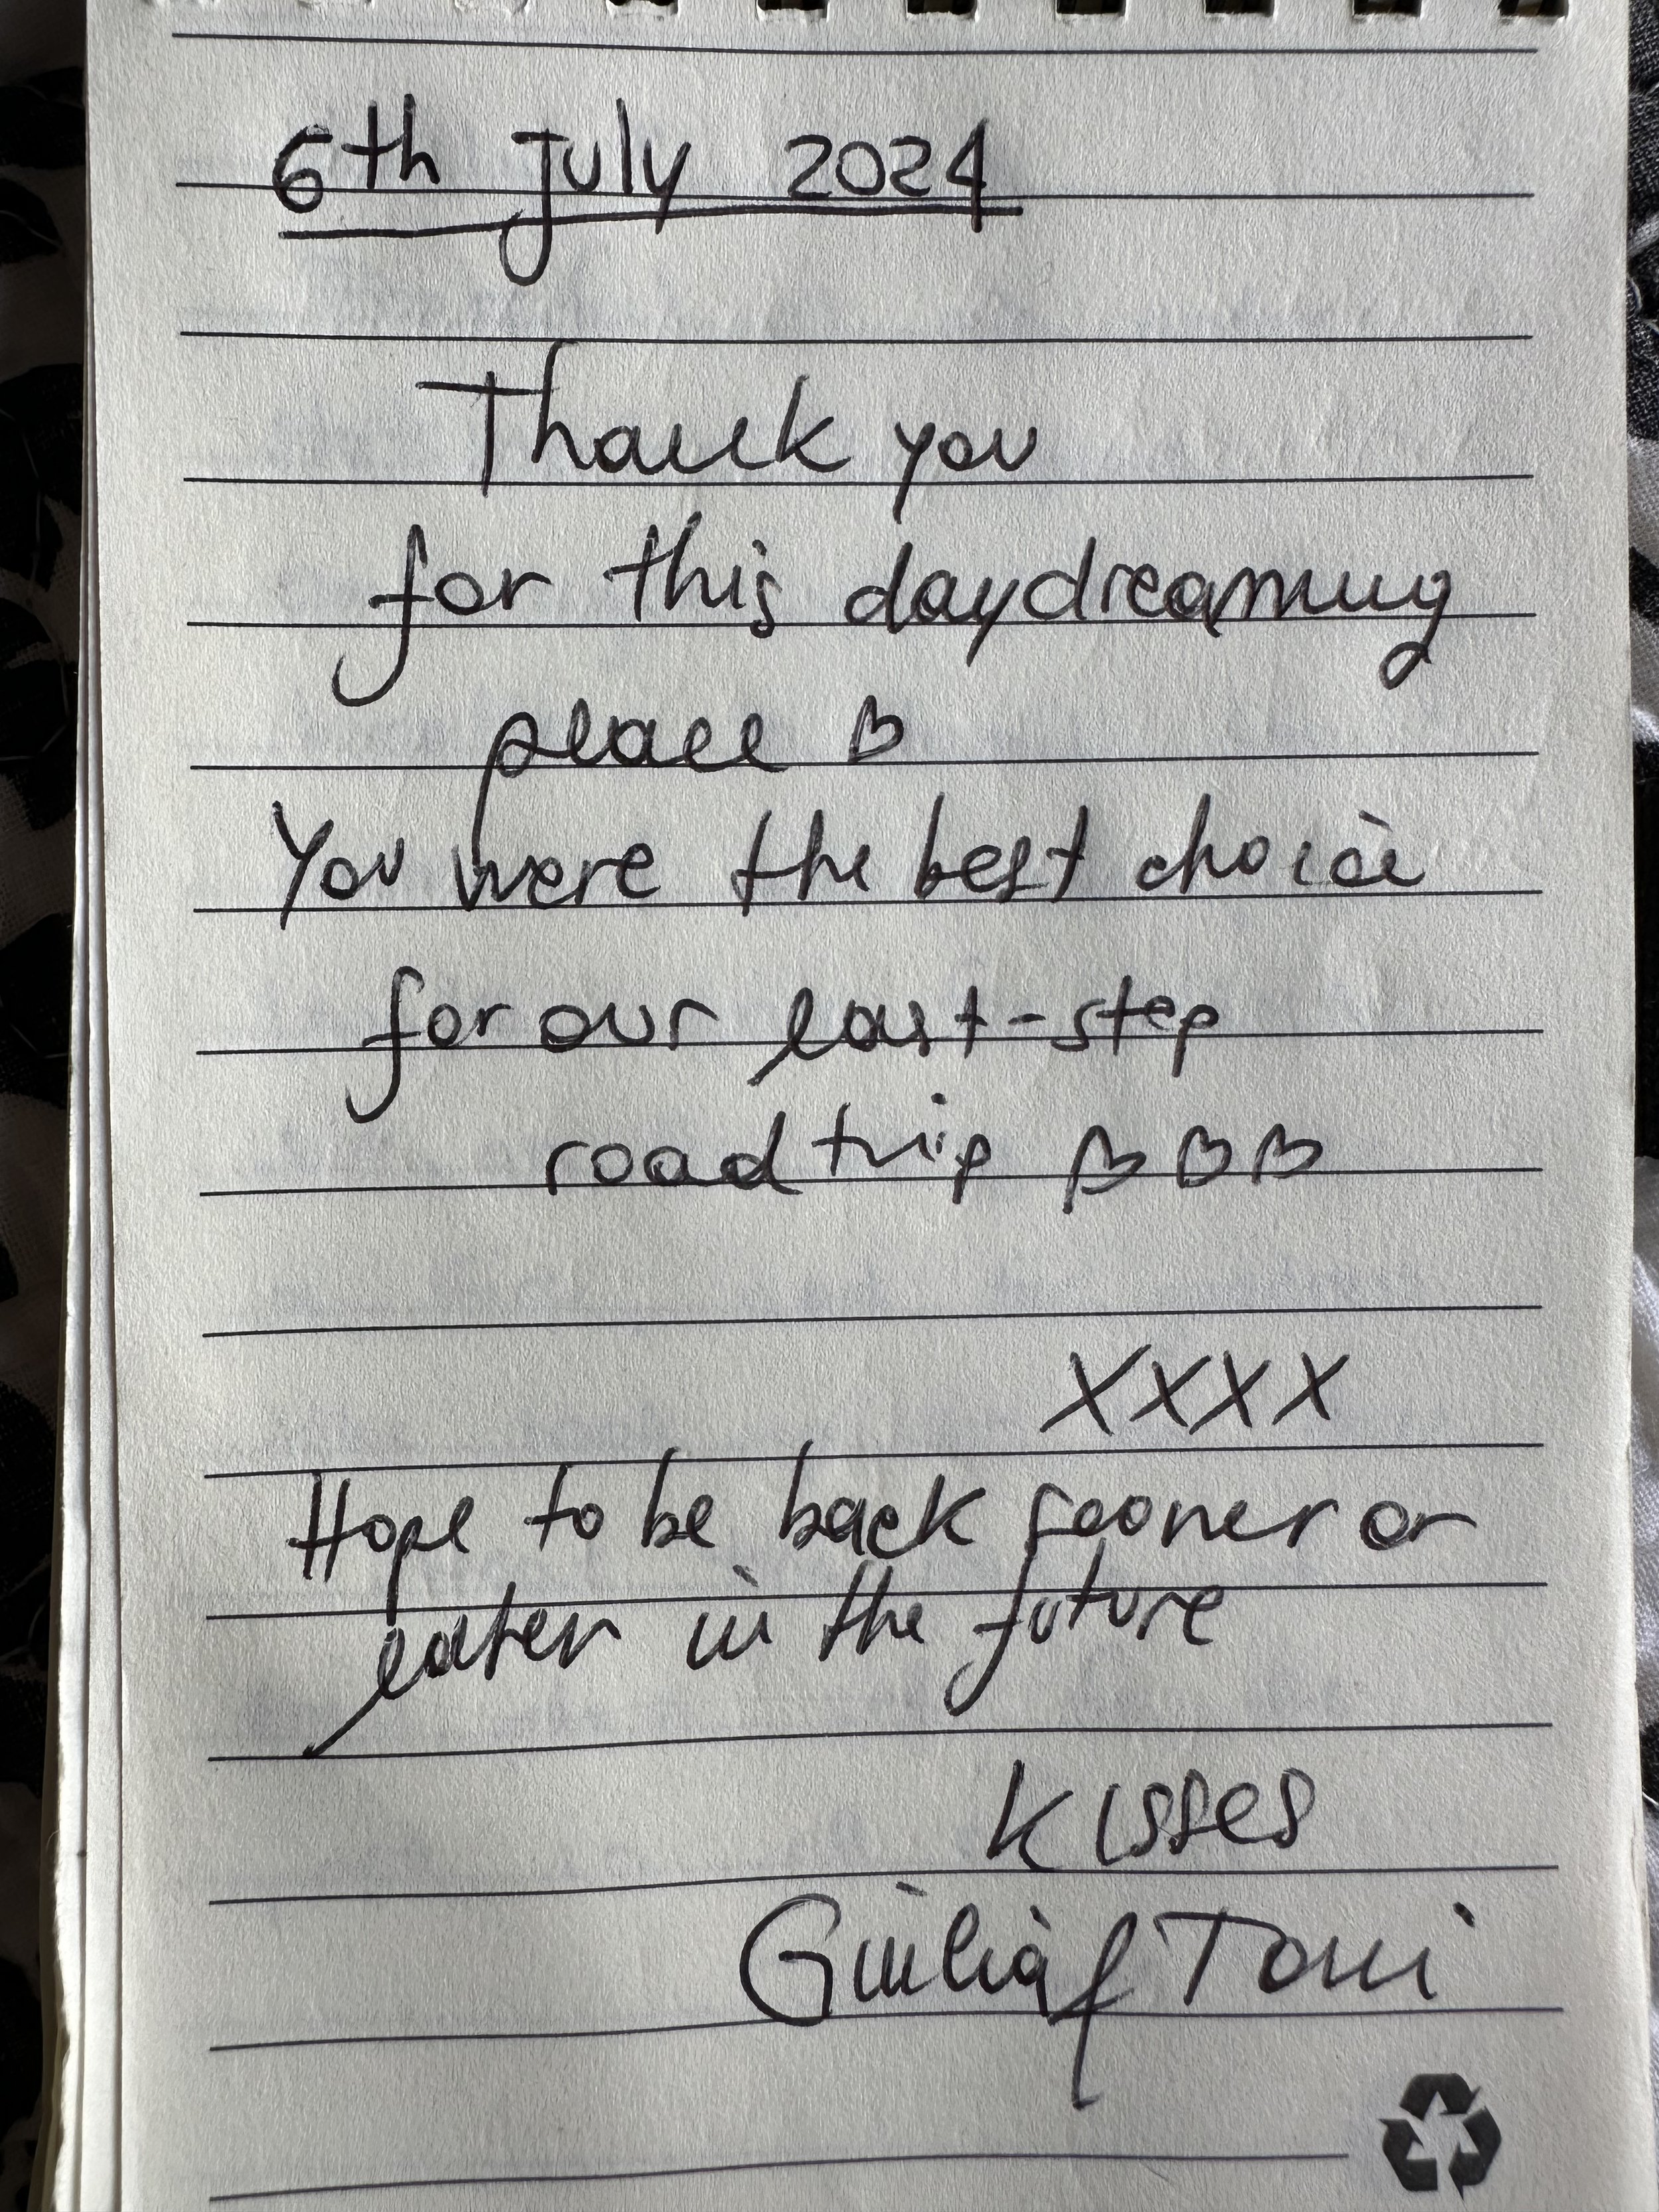 6th July 2024
Thank you
for this daydreaming
place ♡
You were the best choice
for our last-step
road trip ♡♡♡
XXXX
Hope to be back sooner or
later in the future
Kisses
Giulia & Toni